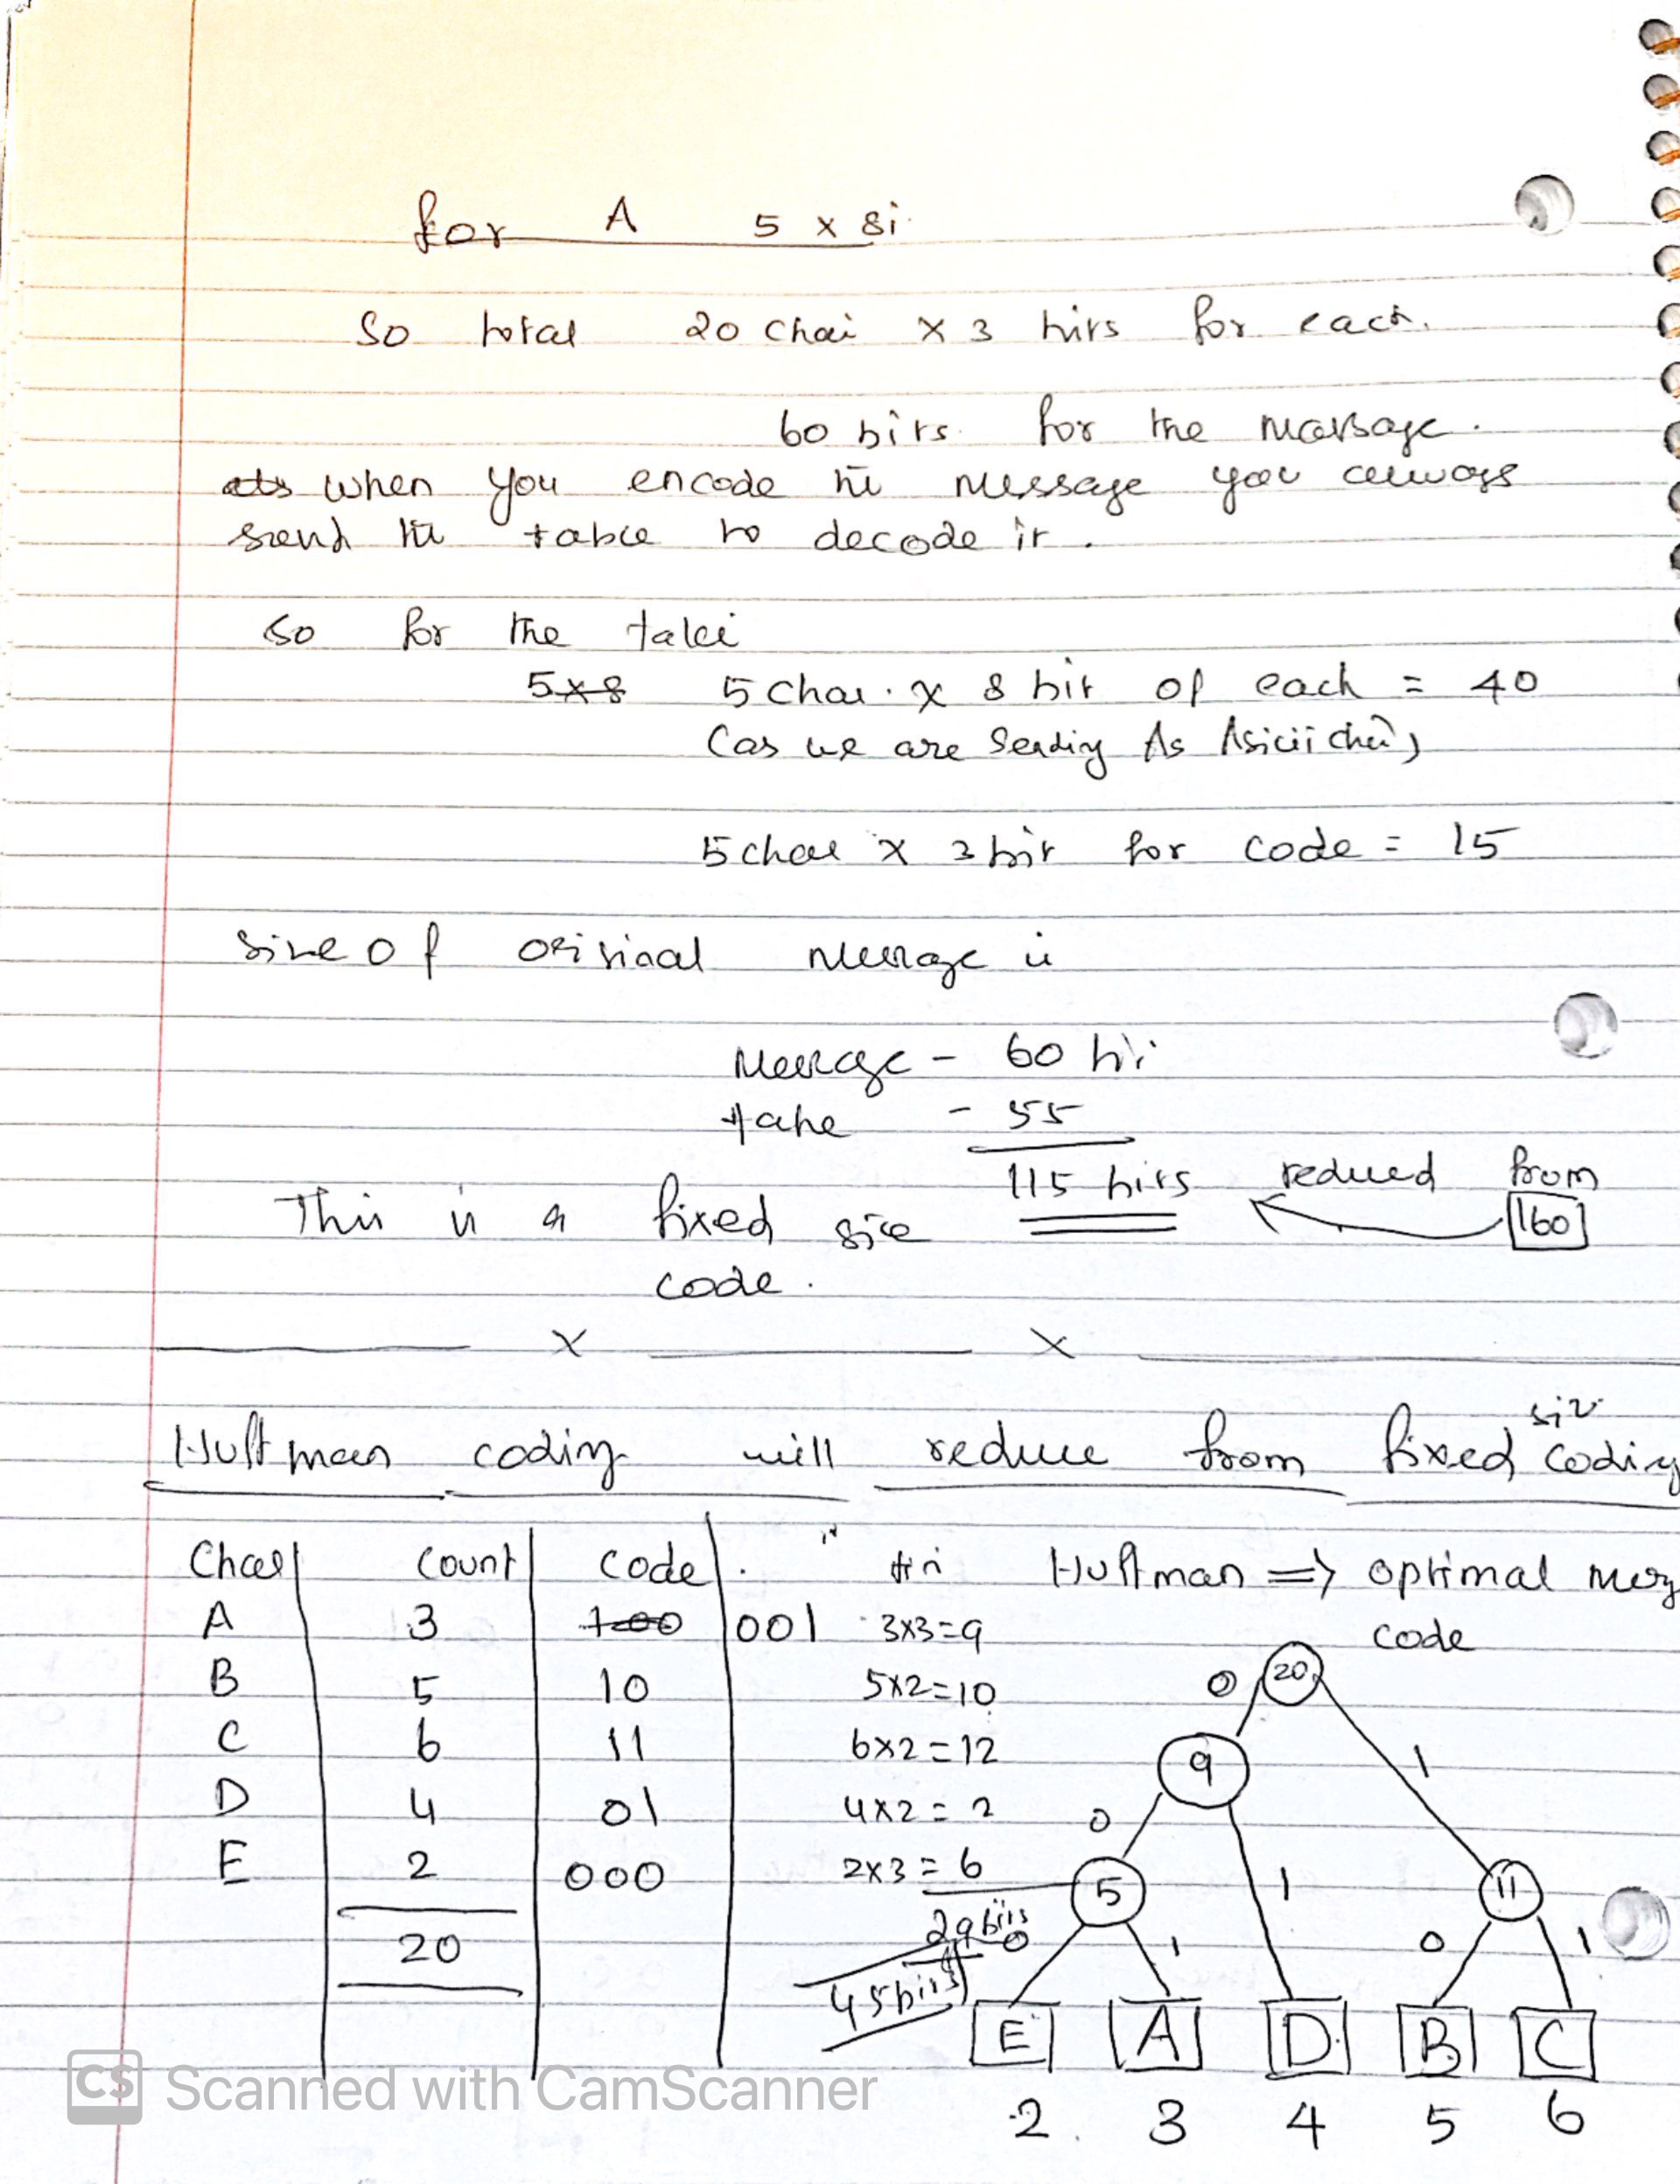 for A 5 x 8i
So total 20 char x 3 bits for each.
60 bits for the message.
when you encode the message you always
send the table to decode it.
so for the table
5x8 5 char. x 8 bit of each = 40
(as we are sending As Asicii char)
5 char x 3 bit for code = 15
size of original message is
Message - 60 bi
table - 55
115 bits reduced from
160
This is a fixed size
code.
X X
Huffman coding will reduce from fixed size coding
Char count code Huffman => optimal merg
code
A 3 100 001 3x3=9
B 5 10 5x2=10
C 6 11 6x2=12
D 4 01 4x2=2
E 2 000 2x3=6
20
29 bits
45 bits
20
0 1
9 11
0 1 0 1
5
0 1
E A D B C
2. 3 4 5 6
CS Scanned with CamScanner